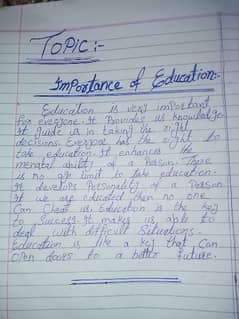 TOPIC:-
Importance of Education:-
Education is very important
for everyone. It Provides us knowledge
It guide us in taking the right
decisions. Everyone has the right to
take education. It enhances the
mental ability of a Person. There
is no age limit to take education.
It develops Personality of a Person
If we are educated then no one
Can Cheat us. Education is the key
to Success. It makes us able to
deal with difficult Situations.
Education is like a key that Can
open doors to a better future.